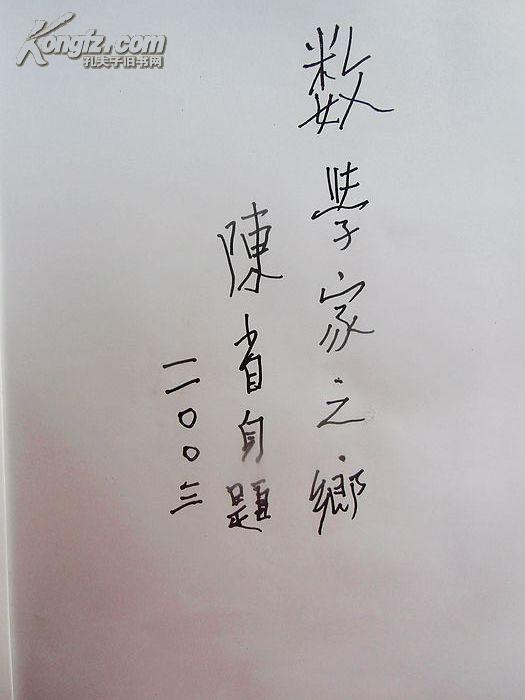 Kongfz.com
孔夫子旧书网
数學家之鄉
陳省身題
二〇〇三